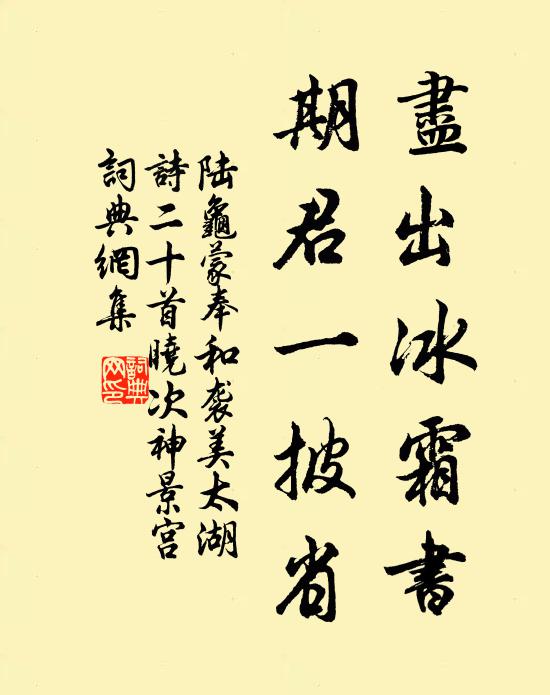 盡出冰霜書
期君一披省
陆龜蒙奉和袭美太湖
詩二十首曉次神景宫
詞典網集
詞典
网印